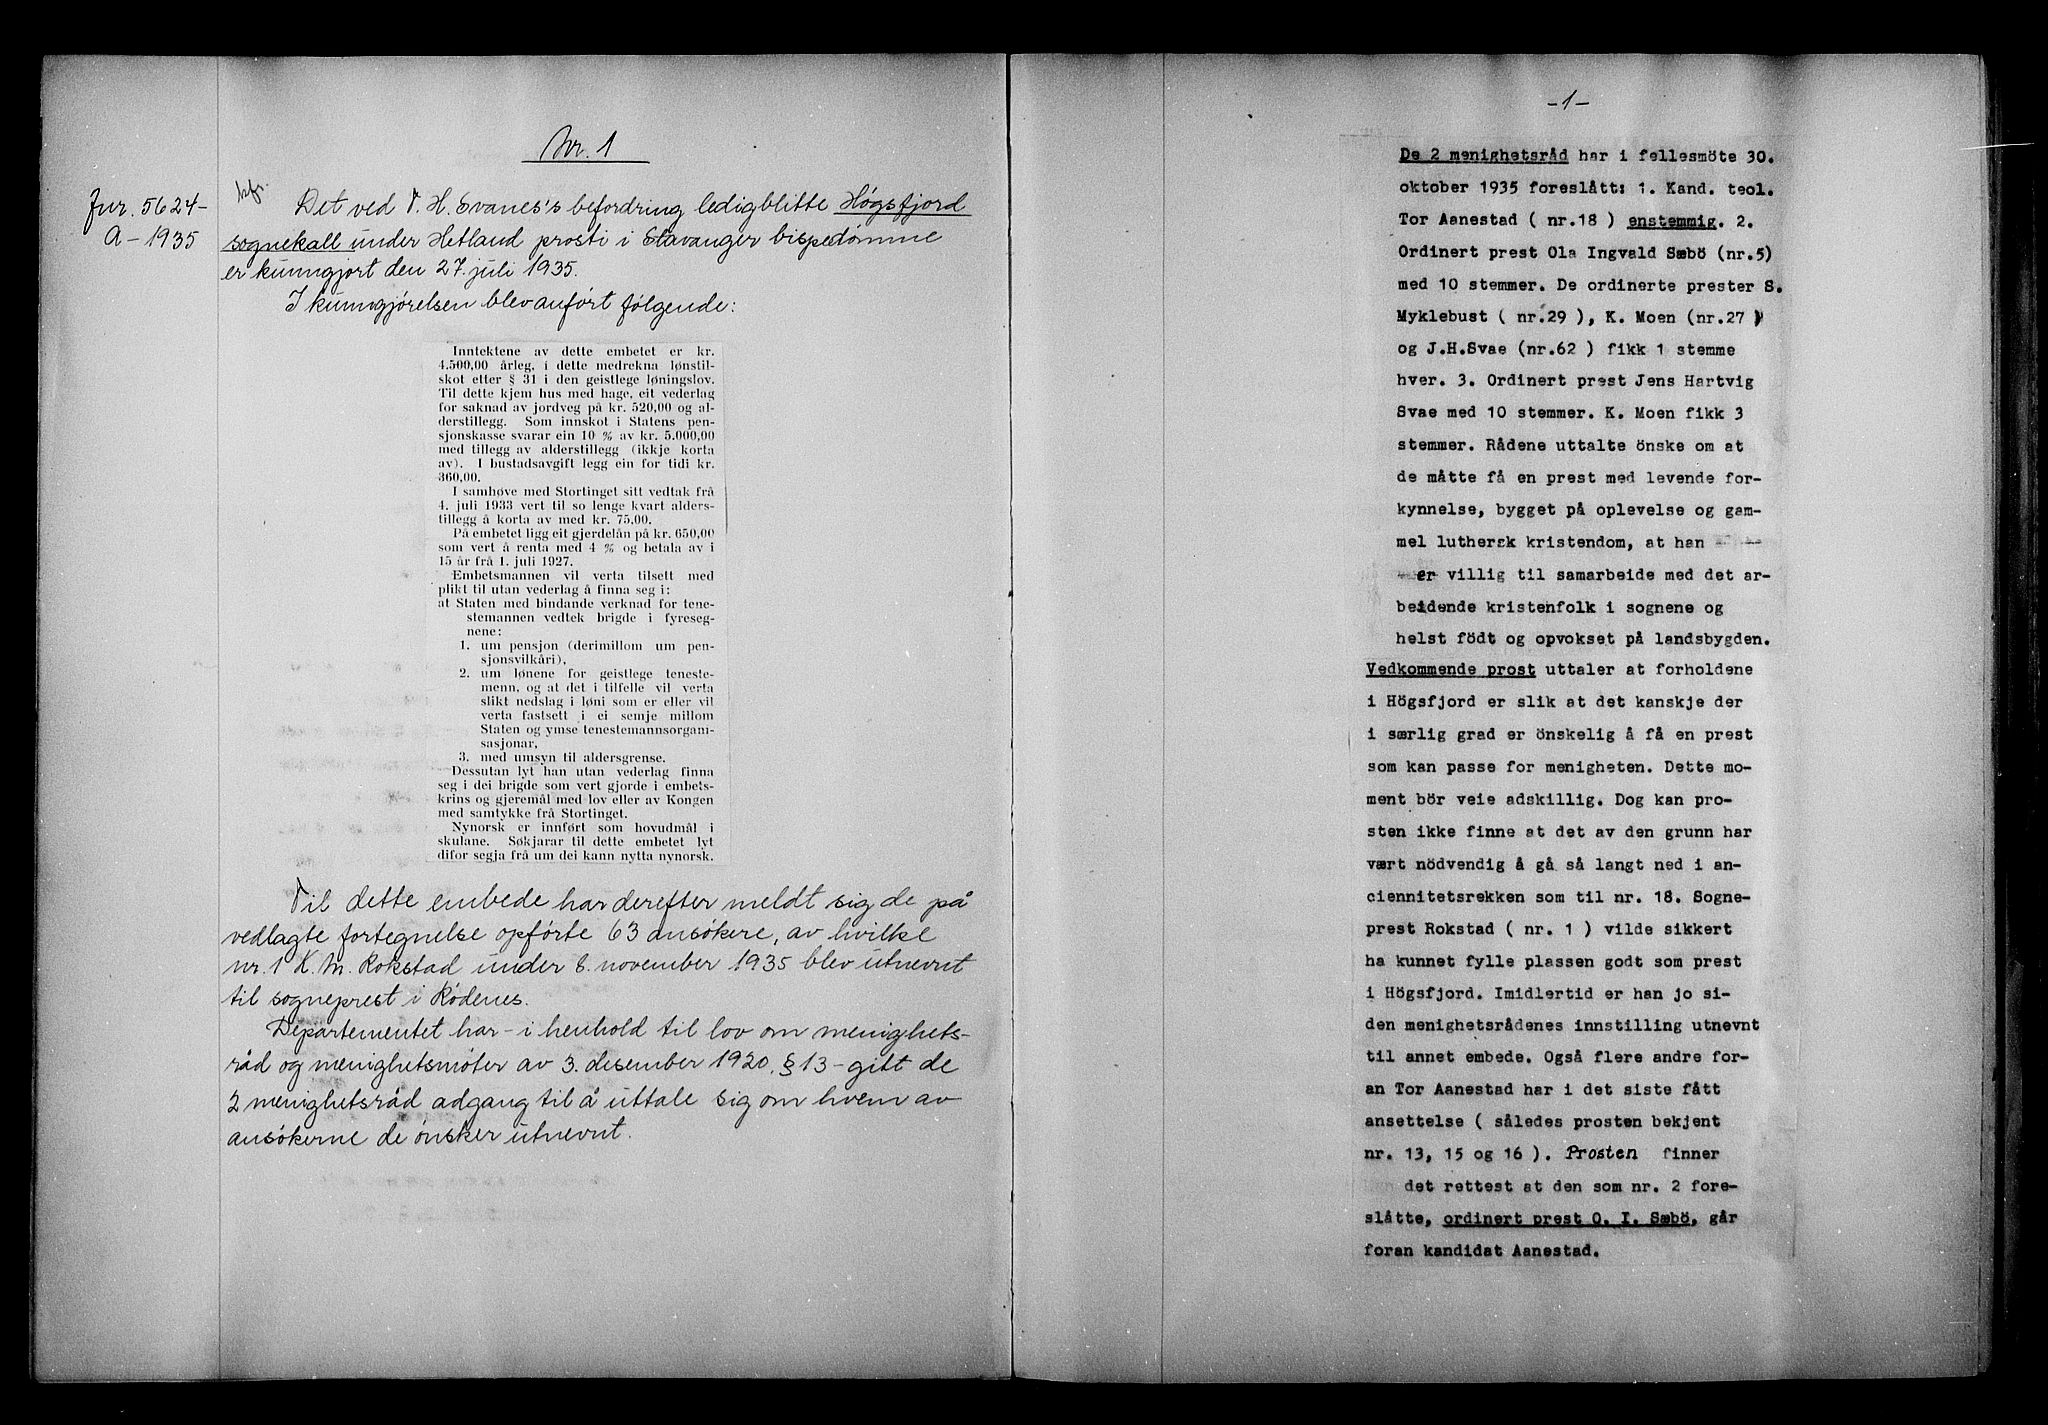 Nr. 1
Jnr. 5624-
A-1935
Det ved T. H. Svanes's befordring ledigblitte Høgsfjord
sognekall under Hetland prosti i Stavanger bispedømme
er kunngjort den 27. juli 1935.
I kunngjørelsen blev anført følgende:
Inntektene av dette embetet er kr.
4.500,00 årleg, i dette medrekna lønstil-
skot etter § 31 i den geistlege løningslov.
Til dette kjem hus med hage, eit vederlag
for saknad av jordveg på kr. 520,00 og al-
derstillegg. Som innskot i Statens pen-
sjonskasse svarar ein 10 % av kr. 5.000,00
med tillegg av alderstillegg (ikkje korta
av). I bustadsavgift legg ein for tidi kr.
360,00.
I samhøve med Stortinget sitt vedtak frå
4. juli 1933 vert til so lenge kvart alders-
tillegg å korta av med kr. 75,00.
På embetet ligg eit gjerdelån på kr. 650,00
som vert å renta med 4 % og betala av i
15 år frå 1. juli 1927.
Embetsmannen vil verta tilsett med
plikt til utan vederlag å finna seg i:
at Staten med bindande verknad for tene-
stemannen vedtek brigde i fyresegn-
nene:
1. um pensjon (derimillom um pen-
sjonsvilkåri),
2. um lønene for geistlege teneste-
menn, og at det i tilfelle vil verta
slikt nedslag i løni som er eller vil
verta fastsett i ei semje millom
Staten og ymse tenestemannsorgani-
sasjonar,
3. med umsyn til aldersgrense.
Dessutan lyt han utan vederlag finna
seg i dei brigde som vert gjorde i embets-
krins og gjeremål med lov eller av Kongen
med samtykke frå Stortinget.
Nynorsk er innført som hovudmål i
skulane. Søkjarar til dette embetet lyt
difor segja frå um dei kann nytta nynorsk.
Til dette embede har derefter meldt sig de på
vedlagte fortegnelse opførte 63 ansøkere, av hvilke
nr. 1 K. M. Rokstad under 8. november 1935 blev utnevnt
til sogneprest i Rødenes.
Departementet har - i henhold til lov om menighets-
råd og menighetsmøter av 3. desember 1920, § 13 - gitt de
2 menighetsråd adgang til å uttale sig om hvem av
ansøkerne de ønsker utnevnt.
-1-
De 2 menighetsråd har i fellesmöte 30.
oktober 1935 foreslått: 1. Kand. teol.
Tor Aanestad ( nr.18 ) enstemmig. 2.
Ordinert prest Ola Ingvald Sæbö (nr.5)
med 10 stemmer. De ordinerte prester S.
Myklebust ( nr.29 ), K. Moen (nr.27 )
og J.H.Svae (nr.62 ) fikk 1 stemme
hver. 3. Ordinert prest Jens Hartvig
Svae med 10 stemmer. K. Moen fikk 3
stemmer. Rådene uttalte önske om at
de måtte få en prest med levende for-
kynnelse, bygget på oplevelse og gam-
mel luthersk kristendom, at han
er villig til samarbeide med det ar-
beidende kristenfolk i sognene og
helst födt og opvokset på landsbygden.
Vedkommende prost uttaler at forholdene
i Högsfjord er slik at det kanskje der
i særlig grad er önskelig å få en prest
som kan passe for menigheten. Dette mo-
ment bör veie adskillig. Dog kan pro-
sten ikke finne at det av den grunn har
vært nödvendig å gå så langt ned i an-
ciennitetsrekken som til nr. 18. Sogne-
prest Rokstad ( nr. 1 ) vilde sikkert
ha kunnet fylle plassen godt som prest
i Högsfjord. Imidlertid er han jo si-
den menighetsrådenes innstilling utnevnt
til annet embede. Også flere andre for-
an Tor Aanestad har i det siste fått
ansettelse ( således prosten bekjent
nr. 13, 15 og 16 ). Prosten finner
det rettest at den som nr. 2 fore-
slåtte, ordinert prest O. I. Sæbö, går
foran kandidat Aanestad.